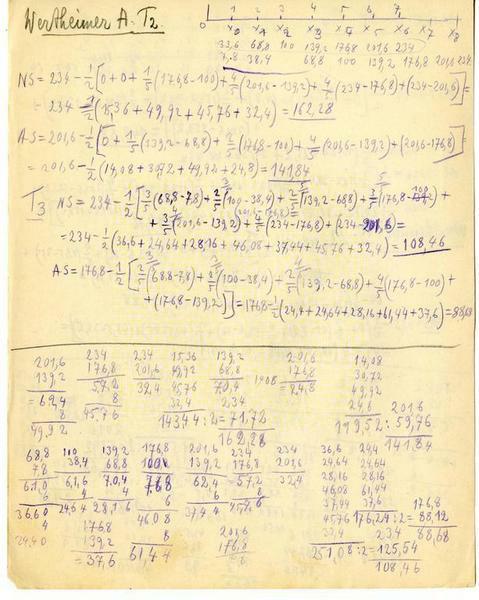 Wertheimer A. T2
0 1 2 3 4 5 6 7
x0 x1 x2 x3 x4 x5 x6 x7 x8
33,6 68,8 100 139,2 176,8 201,6 234
7,8 38,4 68,8 100 139,2 176,8 201,6 234
NS = 234 - 1/2 [0 + 0 + 1/5 (176,8 - 100) + 4/5 (201,6 - 139,2) + 4/5 (234 - 176,8) + (234 - 201,6)] =
= 234 - 1/2 (15,36 + 49,92 + 45,76 + 32,4) = 162,28
AS = 201,6 - 1/2 [0 + 1/5 (139,2 - 68,8) + 2/5 (176,8 - 100) + 4/5 (201,6 - 139,2) + (201,6 - 176,8)] =
= 201,6 - 1/2 (14,08 + 30,72 + 49,92 + 24,8) = 141,84
T3 NS = 234 - 1/2 [3/5 (68,8 - 7,8) + 2/5 (100 - 38,4) + 2/5 (139,2 - 68,8) + 3/5 (176,8 - 100) +
+ 3/5 (201,6 - 139,2) + 4/5 (234 - 176,8) + (234 - 201,6) =
= 234 - 1/2 (36,6 + 24,64 + 28,16 + 46,08 + 37,44 + 45,76 + 32,4) = 108,46
AS = 176,8 - 1/2 [2/5 (68,8 - 7,8) + 2/5 (100 - 38,4) + 2/5 (139,2 - 68,8) + 4/5 (176,8 - 100) +
+ (176,8 - 139,2)] = 176,8 - 1/2 (24,4 + 24,64 + 28,16 + 61,44 + 37,6) = 88,68
201,6 234 234 15,36 139,2 201,6 14,08
139,2 176,8 201,6 49,92 68,8 176,8 30,72
= 62,4 57,2 32,4 45,76 70,4 1408 24,8 49,92
8 8 32,4 234 24,8 201,6
49,92 45,76 143,44 : 2 = 71,72 119,52 : 59,76
162,28 141,84
68,8 100 139,2 176,8 201,6 234 234 36,6 24,4
7,8 38,4 68,8 100 139,2 176,8 201,6 24,64 24,64
61,0 61,6 70,4 76,8 62,4 57,2 32,4 28,16 28,16
6 4 4 6 6 8 46,08 61,44
36,60 24,64 28,16 46,08 37,44 45,76 37,44 37,6 176,8
4 176,8 8 201,6 45,76 176,24 : 2 = 88,12
24,40 139,2 61,44 176,8 32,4 234 88,68
= 37,6 251,08 : 2 = 125,54
108,46